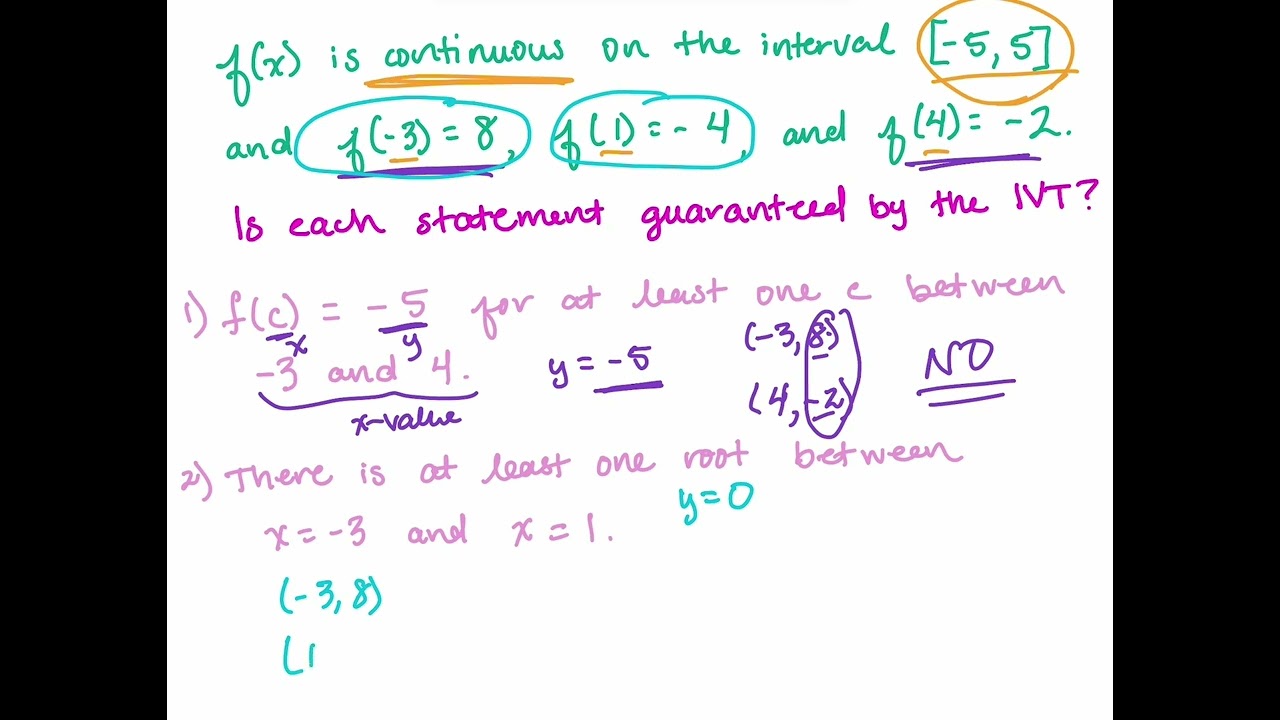 f(x) is continuous on the interval [-5, 5]
and f(-3) = 8, f(1) = -4, and f(4) = -2.
Is each statement guaranteed by the IVT?
1) f(c) = -5 for at least one c between
x y (-3, 8)
-3 and 4. y = -5 NO
x-value (4, -2)
2) There is at least one root between
y = 0
x = -3 and x = 1.
(-3, 8)
(1